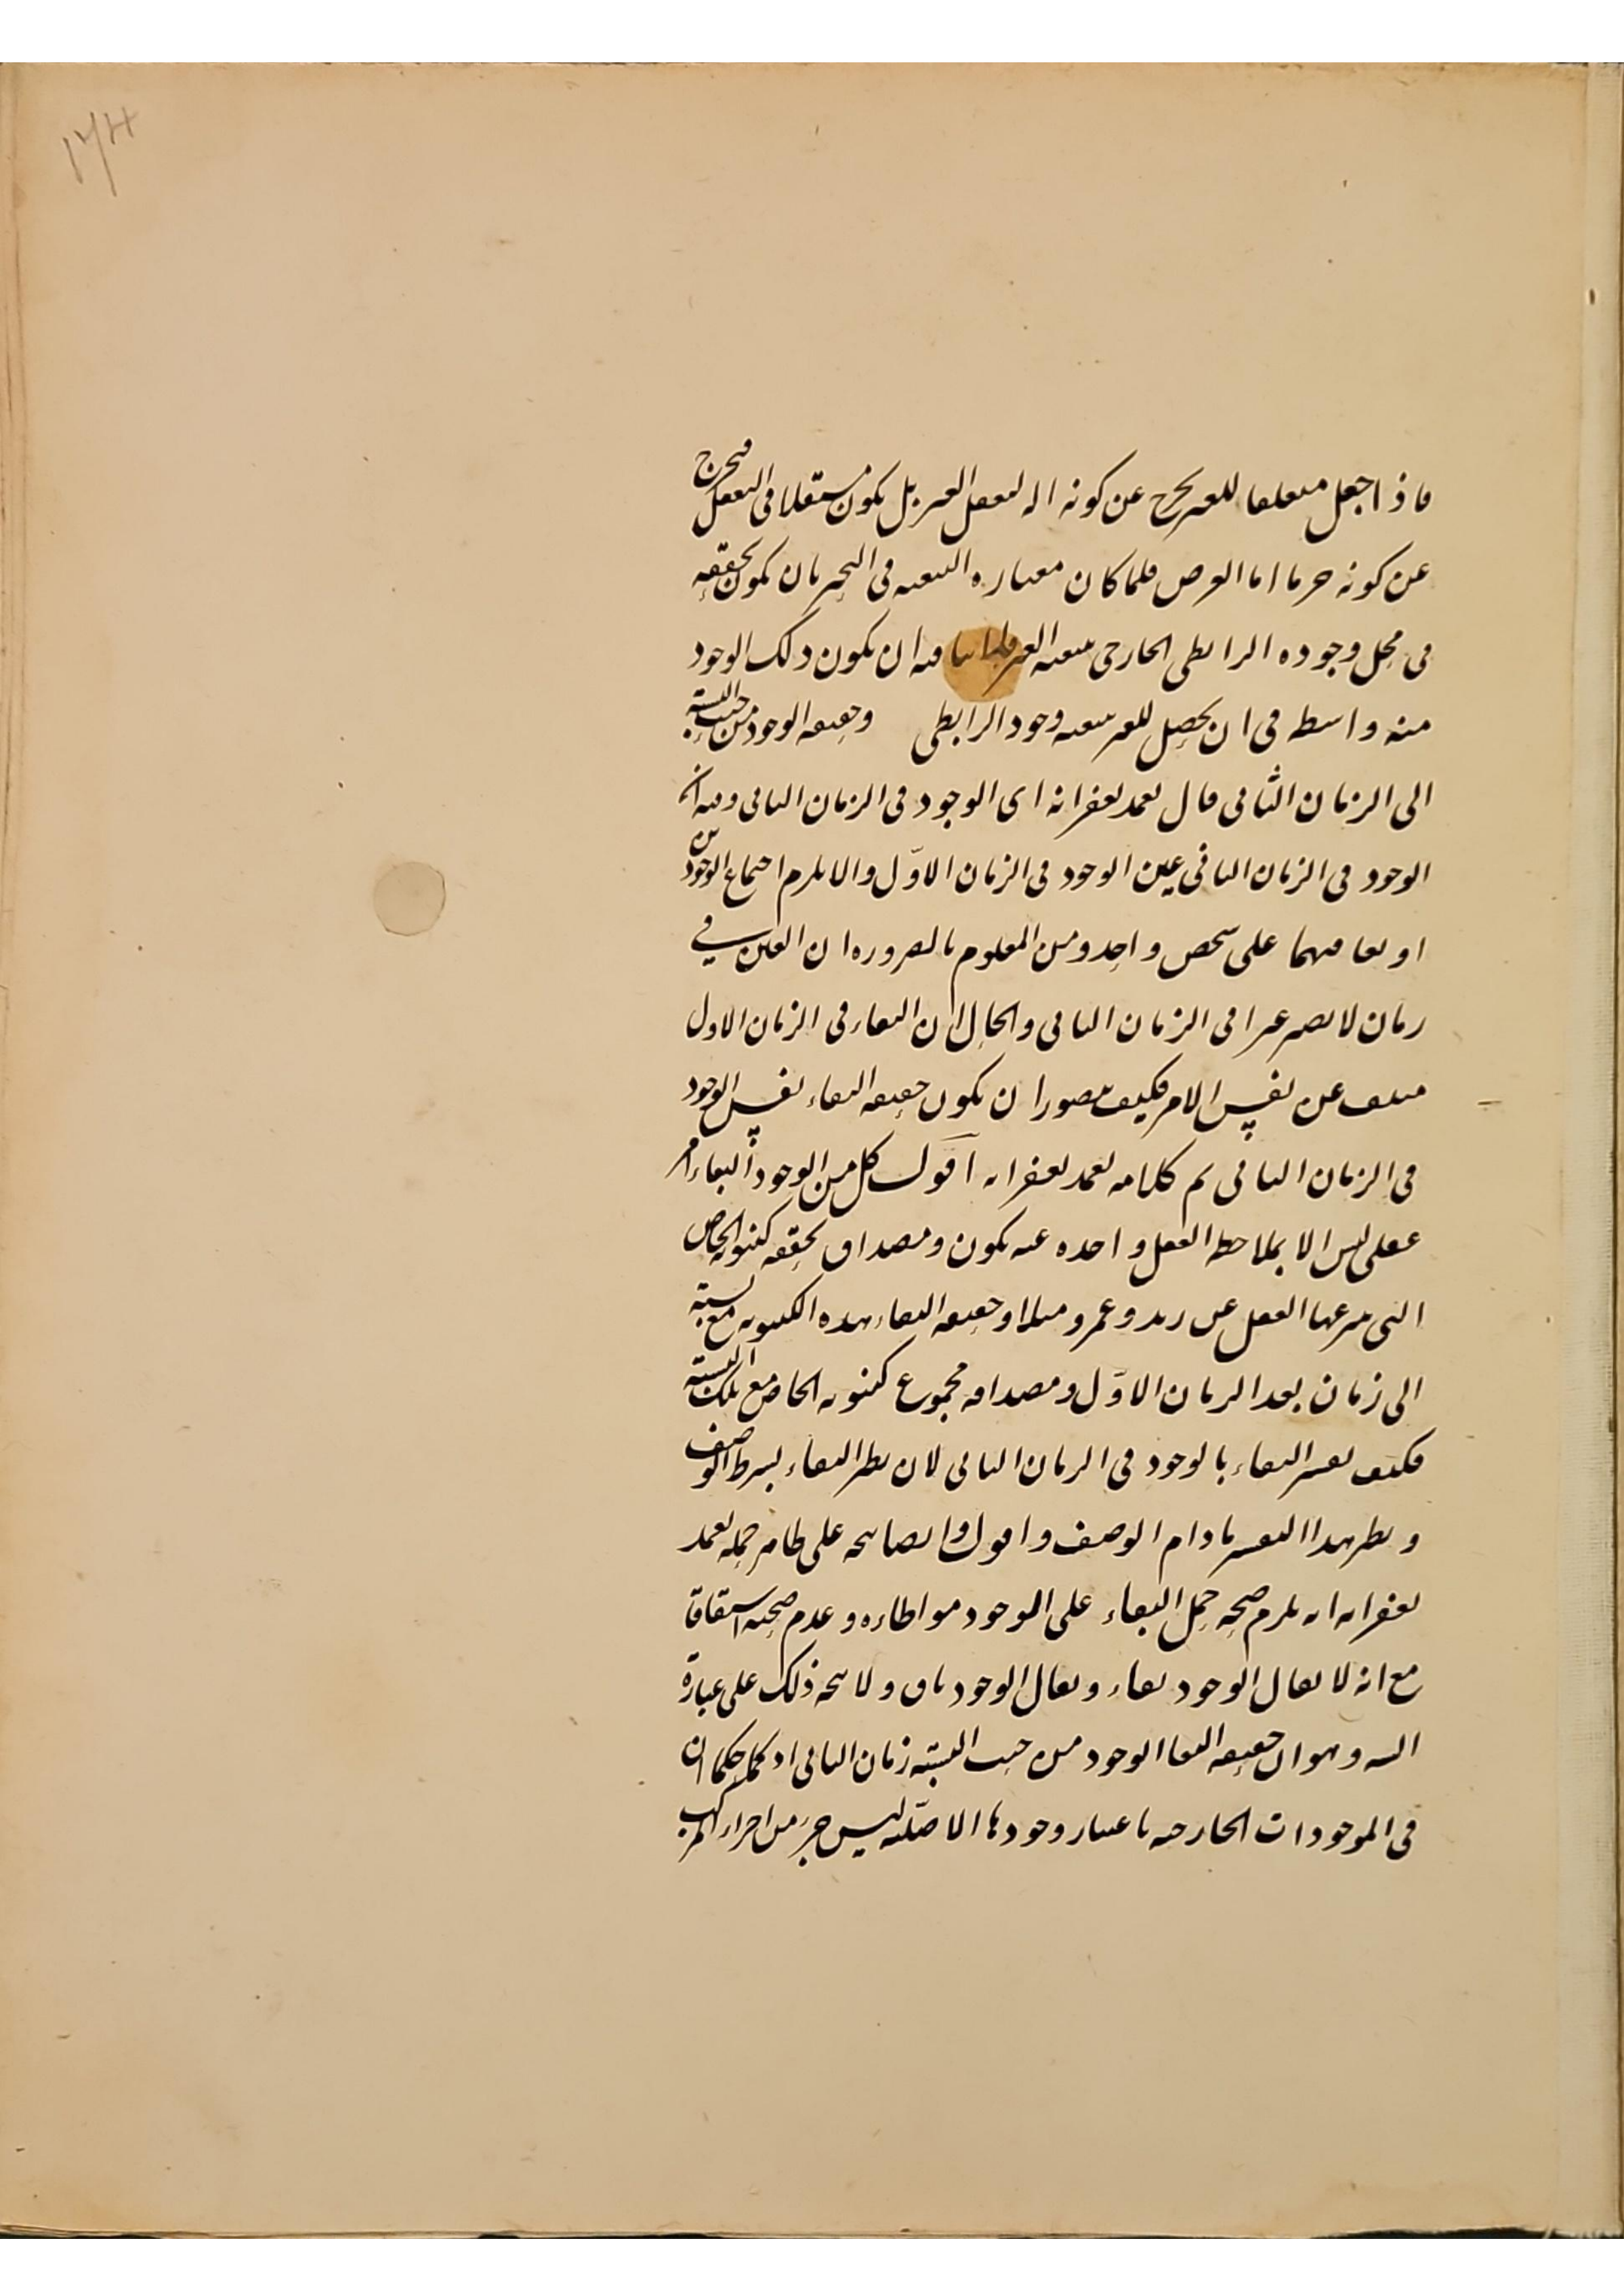 ۱۷۴
فاذا جعل متعلقا للغير يخرج عن كونه اله لتعقل الغير بل يكون مستقلا فى التعقل فيخرج
عن كونه حرفا اما العرض فلما كان معناره التبعيه فى التحيز بان يكون تحققه
فى محل وجوده الرابطى الخارجى بتبعيه الغير فيه ان يكون ذلك الوجود
منه واسطه فى ان يحصل للغير بتبعيه وجود الرابطى وحقيقه الوجود من حيث النسبة
الى الزمان الثانى قال تغمد بغفرانه اى الوجود فى الزمان الثانى وفيه ان
الوجود فى الزمان الثانى عين الوجود فى الزمان الاوّل والا يلزم اجتماع الوجودين
او تعاقبهما على شخص واحد ومن المعلوم بالضروره ان العين فى
زمان لا يصير غيرا فى الزمان الثانى والحال ان البقاء فى الزمان الاول
منتف عن نفس الامر فكيف يتصور ان يكون حقيقه البقاء نفس الوجود
فى الزمان الثانى تم كلامه تغمد بغفرانه اقول كل من الوجود والبقاء امر
عقلى ليس الا بملاحظه العقل واحده عنه يكون ومصداق تحققه كينونه الخاص
التى ينتزعها العقل عن زيد وعمرو مثلا وحقيقه البقاء بهذه الكينونه مع نسبته
الى زمان بعد الزمان الاوّل ومصداقه مجموع كينونه الخاص مع تلك النسبته
فكيف تفسير البقاء بالوجود فى الزمان الثانى لان نظر البقاء بشرط الوصف
ونظر هذا التفسير مادام الوصف واقول وايضا يتجه على ظاهر حمله تغمد
بغفرانه انه يلزم صحه حمل البقاء على الوجود مواطاءه وعدم صحته اشتقاقا
مع انه لا يقال الوجود بقاء ويقال الوجود باق ولا يتجه ذلك على عبارة
السه وهو ان حقيقه البقا الوجود من حيث النسبته زمان الثانى اذ كما حكما ان
فى الموجودات الخارجيه باعتبار وجودها الاصليه ليس جزء من اجزاء المركب